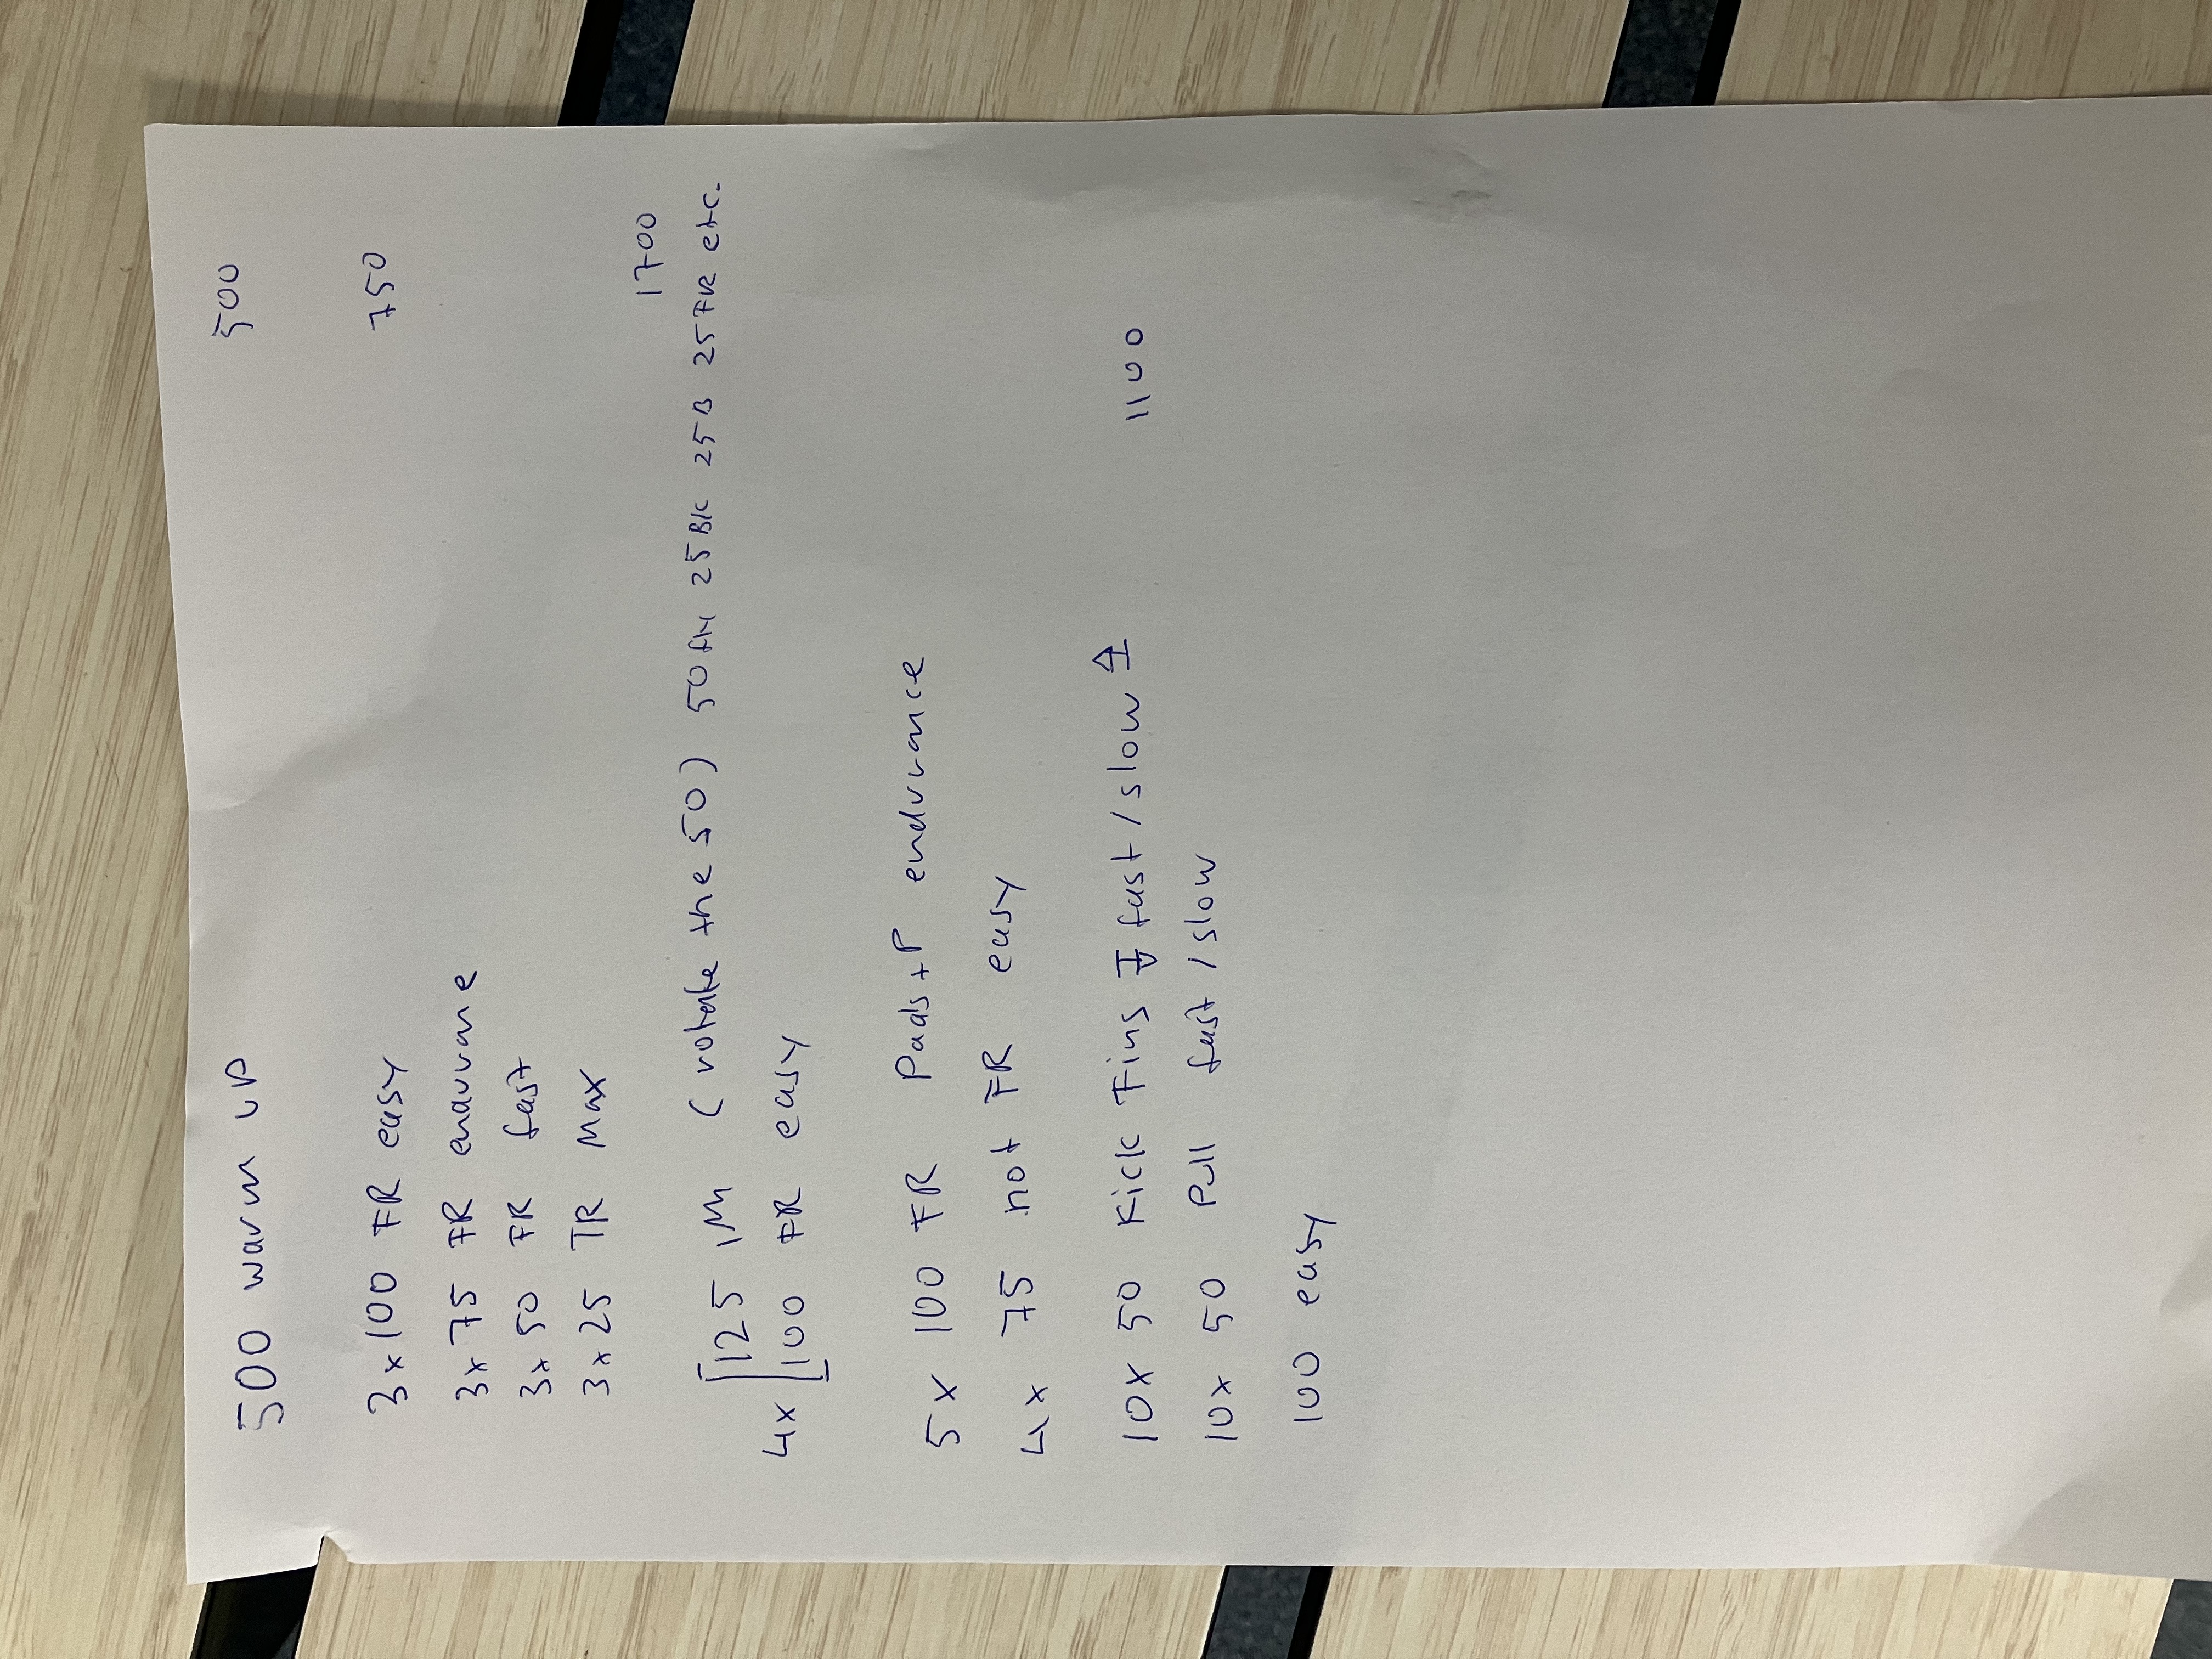 500 warm up 500
3x100 FR easy 750
3x 75 FR endurane
3x 50 FR fast
3x25 TR Max
1700
125 IM (rotate the 50) 50 fly 25 B/C 25 B 25 FR etc.
4x
100 FR easy
5x 100 FR Pads + P endurance
4x 75 not FR easy
10x 50 Kick Fins ↧ fast/slow ↥ 1100
10x 50 Pull fast/slow
100 easy